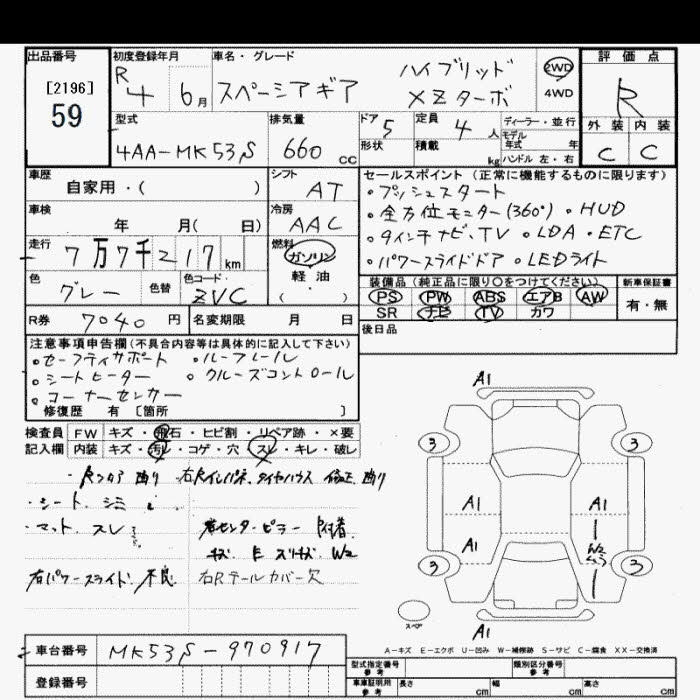 出品番号 初度登録年月 車名・グレード 評価点
[2196] R4 6月 スペーシアギア ハイブリッド 2WD
59 XZターボ 4WD R
型式 排気量 ドア 定員 ディーラー・並行 外装 内装
4AA-MK53S 660 CC 5 4人 モデル年式 年 C C
形状 積載 kg ハンドル 左・右
車歴 シフト セールスポイント (正常に機能するものに限ります)
自家用・( ) AT ・プッシュスタート
車検 冷房 ・全方位モニター(360°) ・HUD
年 月( 日) AAC ・9インチナビ、TV ・LDA ・ETC
走行 燃料 ・パワースライドドア ・LEDライト
7万7千217km ガソリン
色 色替 色コード 軽・油 装備品 (純正品に限り○をつけてください) 新車保証書
グレー ZVC ( ・ ) PS PW ABS エアB AW 有・無
SR ナビ TV カワ
R券 7040円 名変期限 月 日 後日品
注意事項申告欄 (不具合内容等は具体的に記入して下さい)
・セーフティサポート ・ルーフレール
・シートヒーター ・クルーズコントロール
・コーナーセンサー
修復歴 有 [箇所 ]
検査員 FW キズ・飛石・ヒビ割・リペア跡・×要
記入欄 内装 キズ・汚レ・コゲ・穴・スレ・キレ・破レ
右Rインパネ、タイヤハウス 修正
・シート シミ
・マット スレ 右センターピラー
キズ W2
右パワースライド 不良 右Rテールカバー欠
A1
3 3
A1 A1
A1 W2
3 3
スペア
A1
A-キズ E-エクボ U-凹み W-補修跡 S-サビ C-腐食 XX-交換済
車台番号 MK53S-970917
登録番号
型式指定番号 参考 類別区分番号 参考
車庫証明用 参考 長さ cm 幅 cm 高さ cm